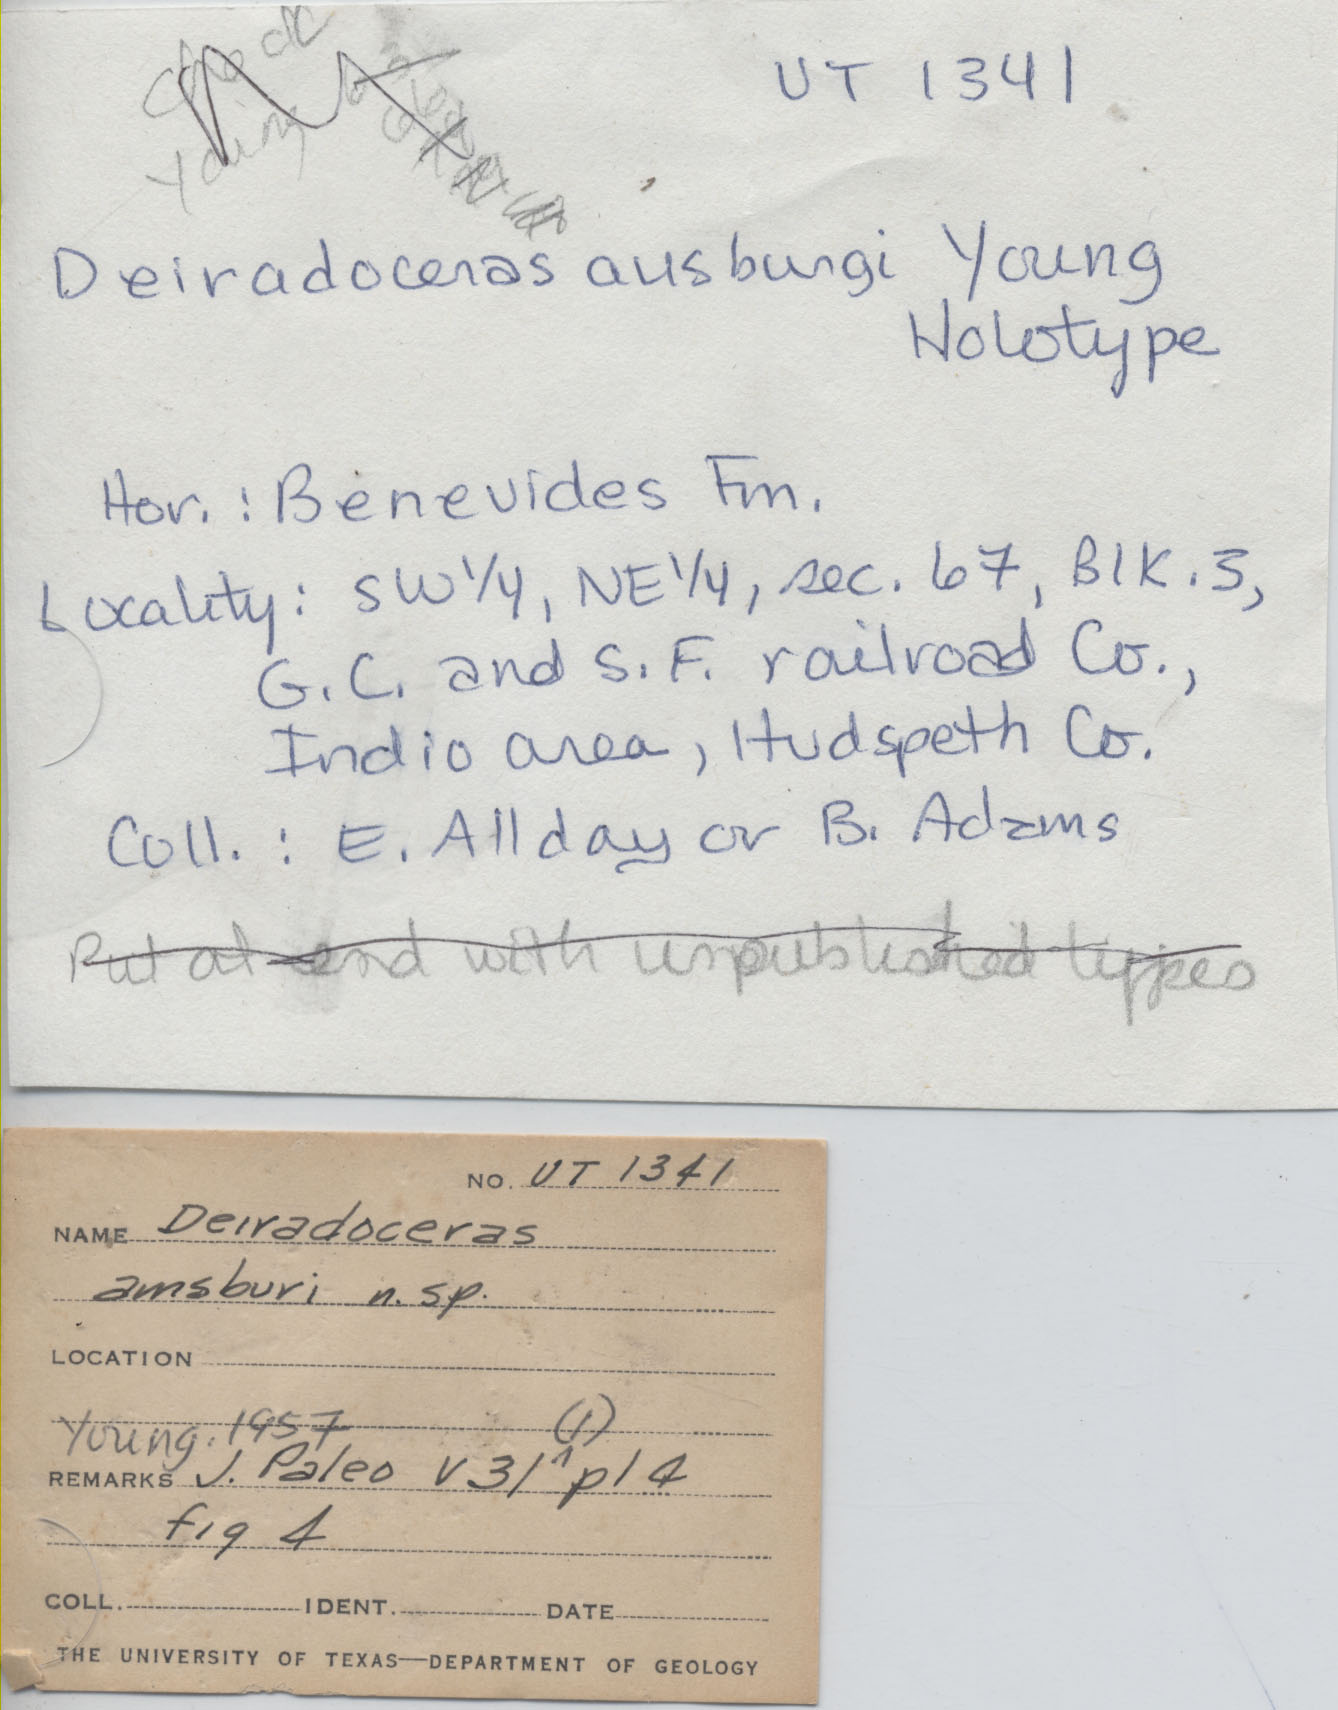 Check
Young
UT 1341
Deiradoceras ausburgi Young
Holotype
Hor. : Benevides Fm.
Locality: SW 1/4, NE 1/4, sec. 67, Blk. 3,
G. C. and S. F. railroad Co.,
Indio area, Hudspeth Co.
Coll. : E. Allday or B. Adams
Put at end with unpublished types
NO. UT 1341
NAME Deiradoceras
amsburi n. sp.
LOCATION
Young. 1957 (1)
REMARKS J. Paleo v 31 ^ pl 4
fig 4
COLL. IDENT. DATE
THE UNIVERSITY OF TEXAS—DEPARTMENT OF GEOLOGY